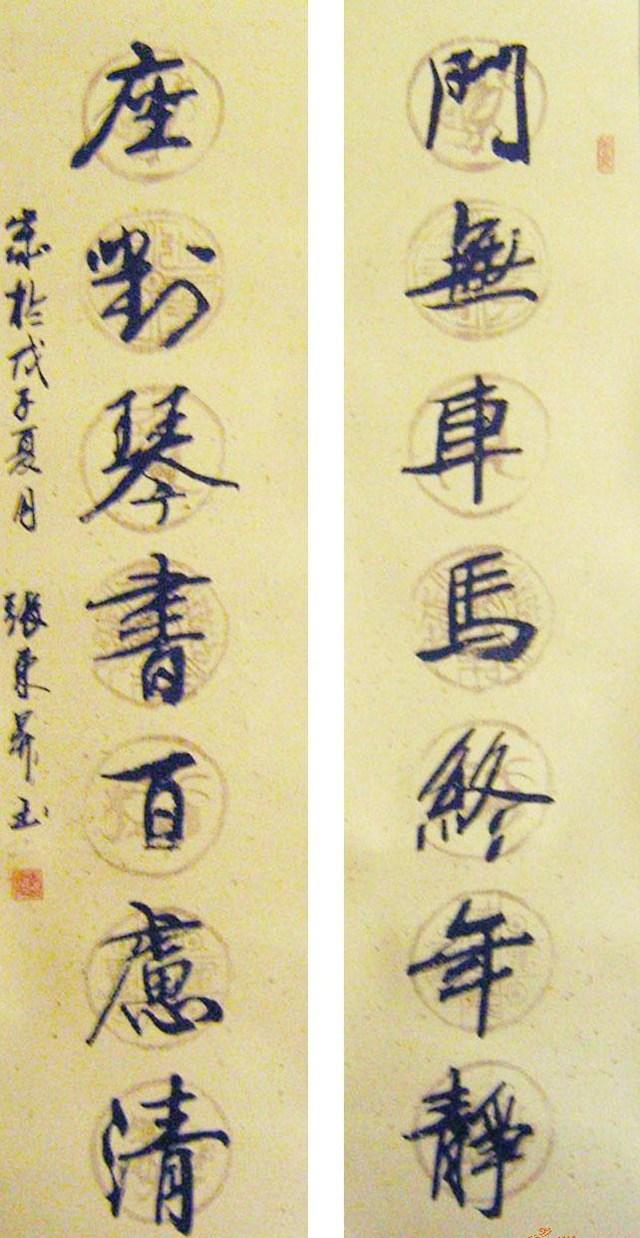 門無車馬終年靜
座對琴書百慮清
歲於戊子夏月 張東昇玉